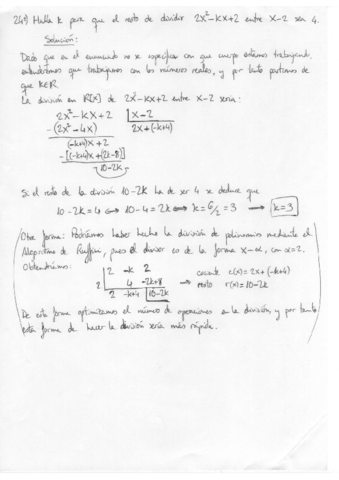 249) Halla k para que el resto de dividir 2x²-kx+2 entre x-2 sea 4.
Solución:
Dado que en el enunciado no se especifica con que cuerpo estamos trabajando,
entenderemos que trabajamos con los números reales, y por tanto partamos de
que k∈R.
La división en R[x] de 2x²-kx+2 entre x-2 sería:
2x²-kx+2 | x-2
-(2x²-4x) 2x+(-k+4)
(-k+4)x+2
-[(-k+4)x+(2k-8)]
10-2k
Si el resto de la división 10-2k ha de ser 4 se deduce que
10-2k=4 ⟺ 10-4=2k ⟺ k=6/2=3 → k=3
Otra forma: Podríamos haber hecho la división de polinomios mediante el
Algoritmo de Ruffini, pues el divisor es de la forma x-α, con α=2.
Obtendríamos:
2 -k 2
2 4 -2k+8
2 -k+4 10-2k
→ cociente c(x)=2x+(-k+4)
resto r(x)=10-2k
De esta forma optimizamos el número de operaciones en la división, y por tanto
esta forma de hacer la división sería más rápida.